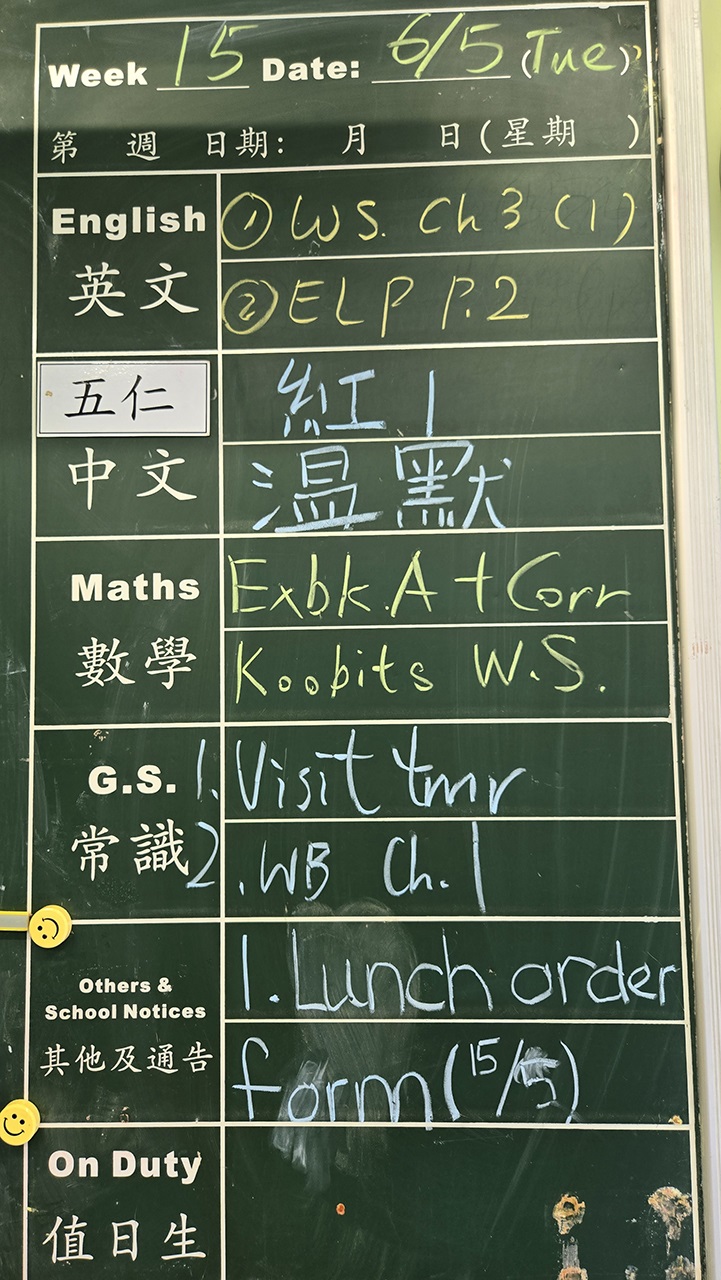 Week 15 Date: 6/5 (Tue)
第 週 日期: 月 日(星期 )
English
英文
① WS. Ch 3 (1)
② ELP P.2
五仁
中文
紅 1
溫默
Maths
數學
Exbk.A + Corr
Koobits W.S.
G.S.
常識
1. Visit tmr
2. WB Ch.1
Others &
School Notices
其他及通告
1. Lunch order
form (15/5)
On Duty
值日生